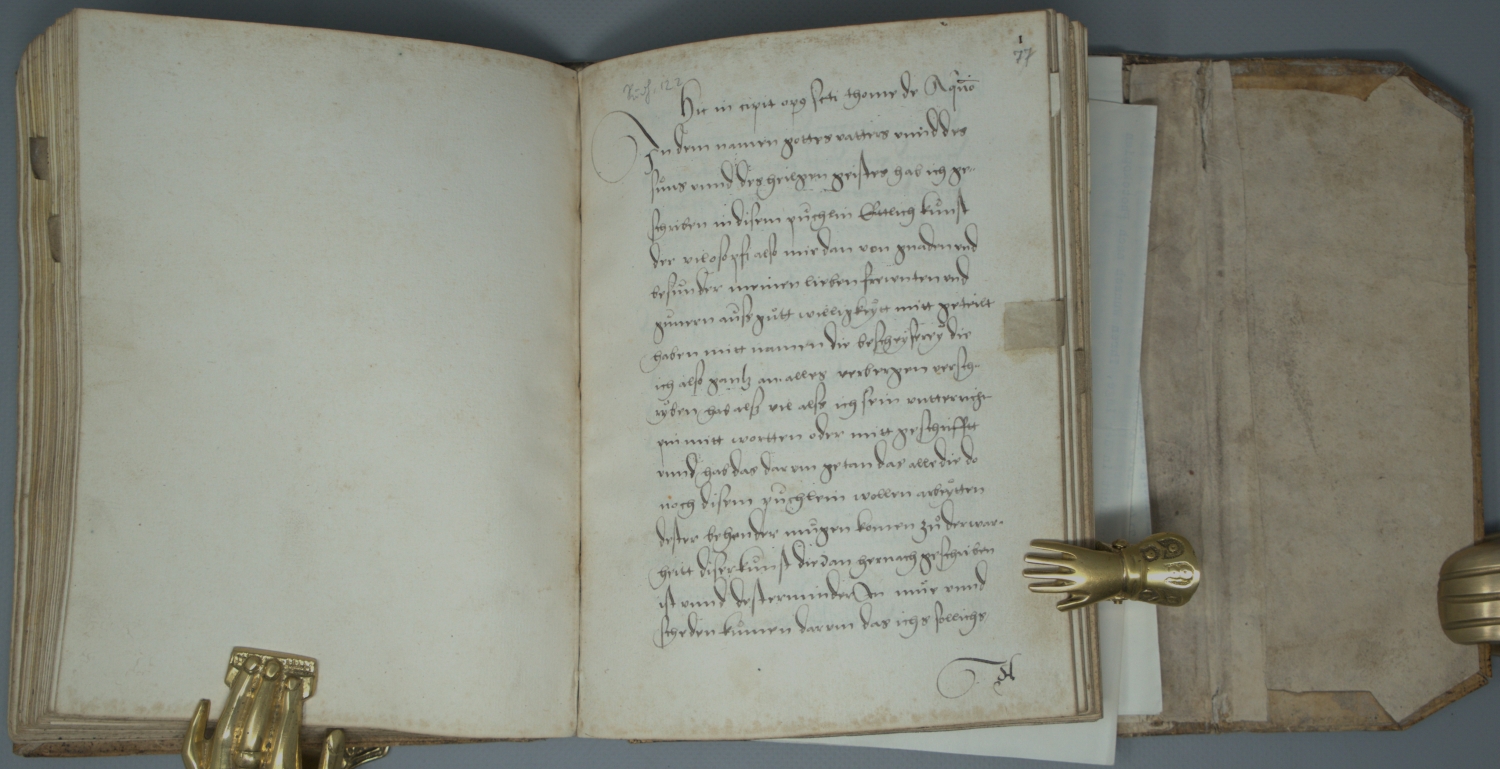 1
77
Hic in cipit opus scti thome de Aquio
In dem namen gottes vatters vnnd des
suns vnnd des heiligen geistes hab ich ge-
schriben in disem puchlin Ettlich kunst
der vilosopfi also mir dan von gnaden vnd
besunder meinen lieben freunten vnd
gunern auss gutt willigkeytt mitt geteilt
haben mitt namen die
ich also gantz an alles verbergen versch-
ryben hab alss vil alss ich sein vntterricht
pin mitt wortten oder mitt geschrifftt
vnnd hab das darvm getan das alle die do
noch disem puchlein wollen arbeytten
dester behender mugen komen zu der war-
heitt diser kunst die dan hernach geschriben
ist vnnd dester minder An mue vnnd
scheden kumen darvm das ich sollichs